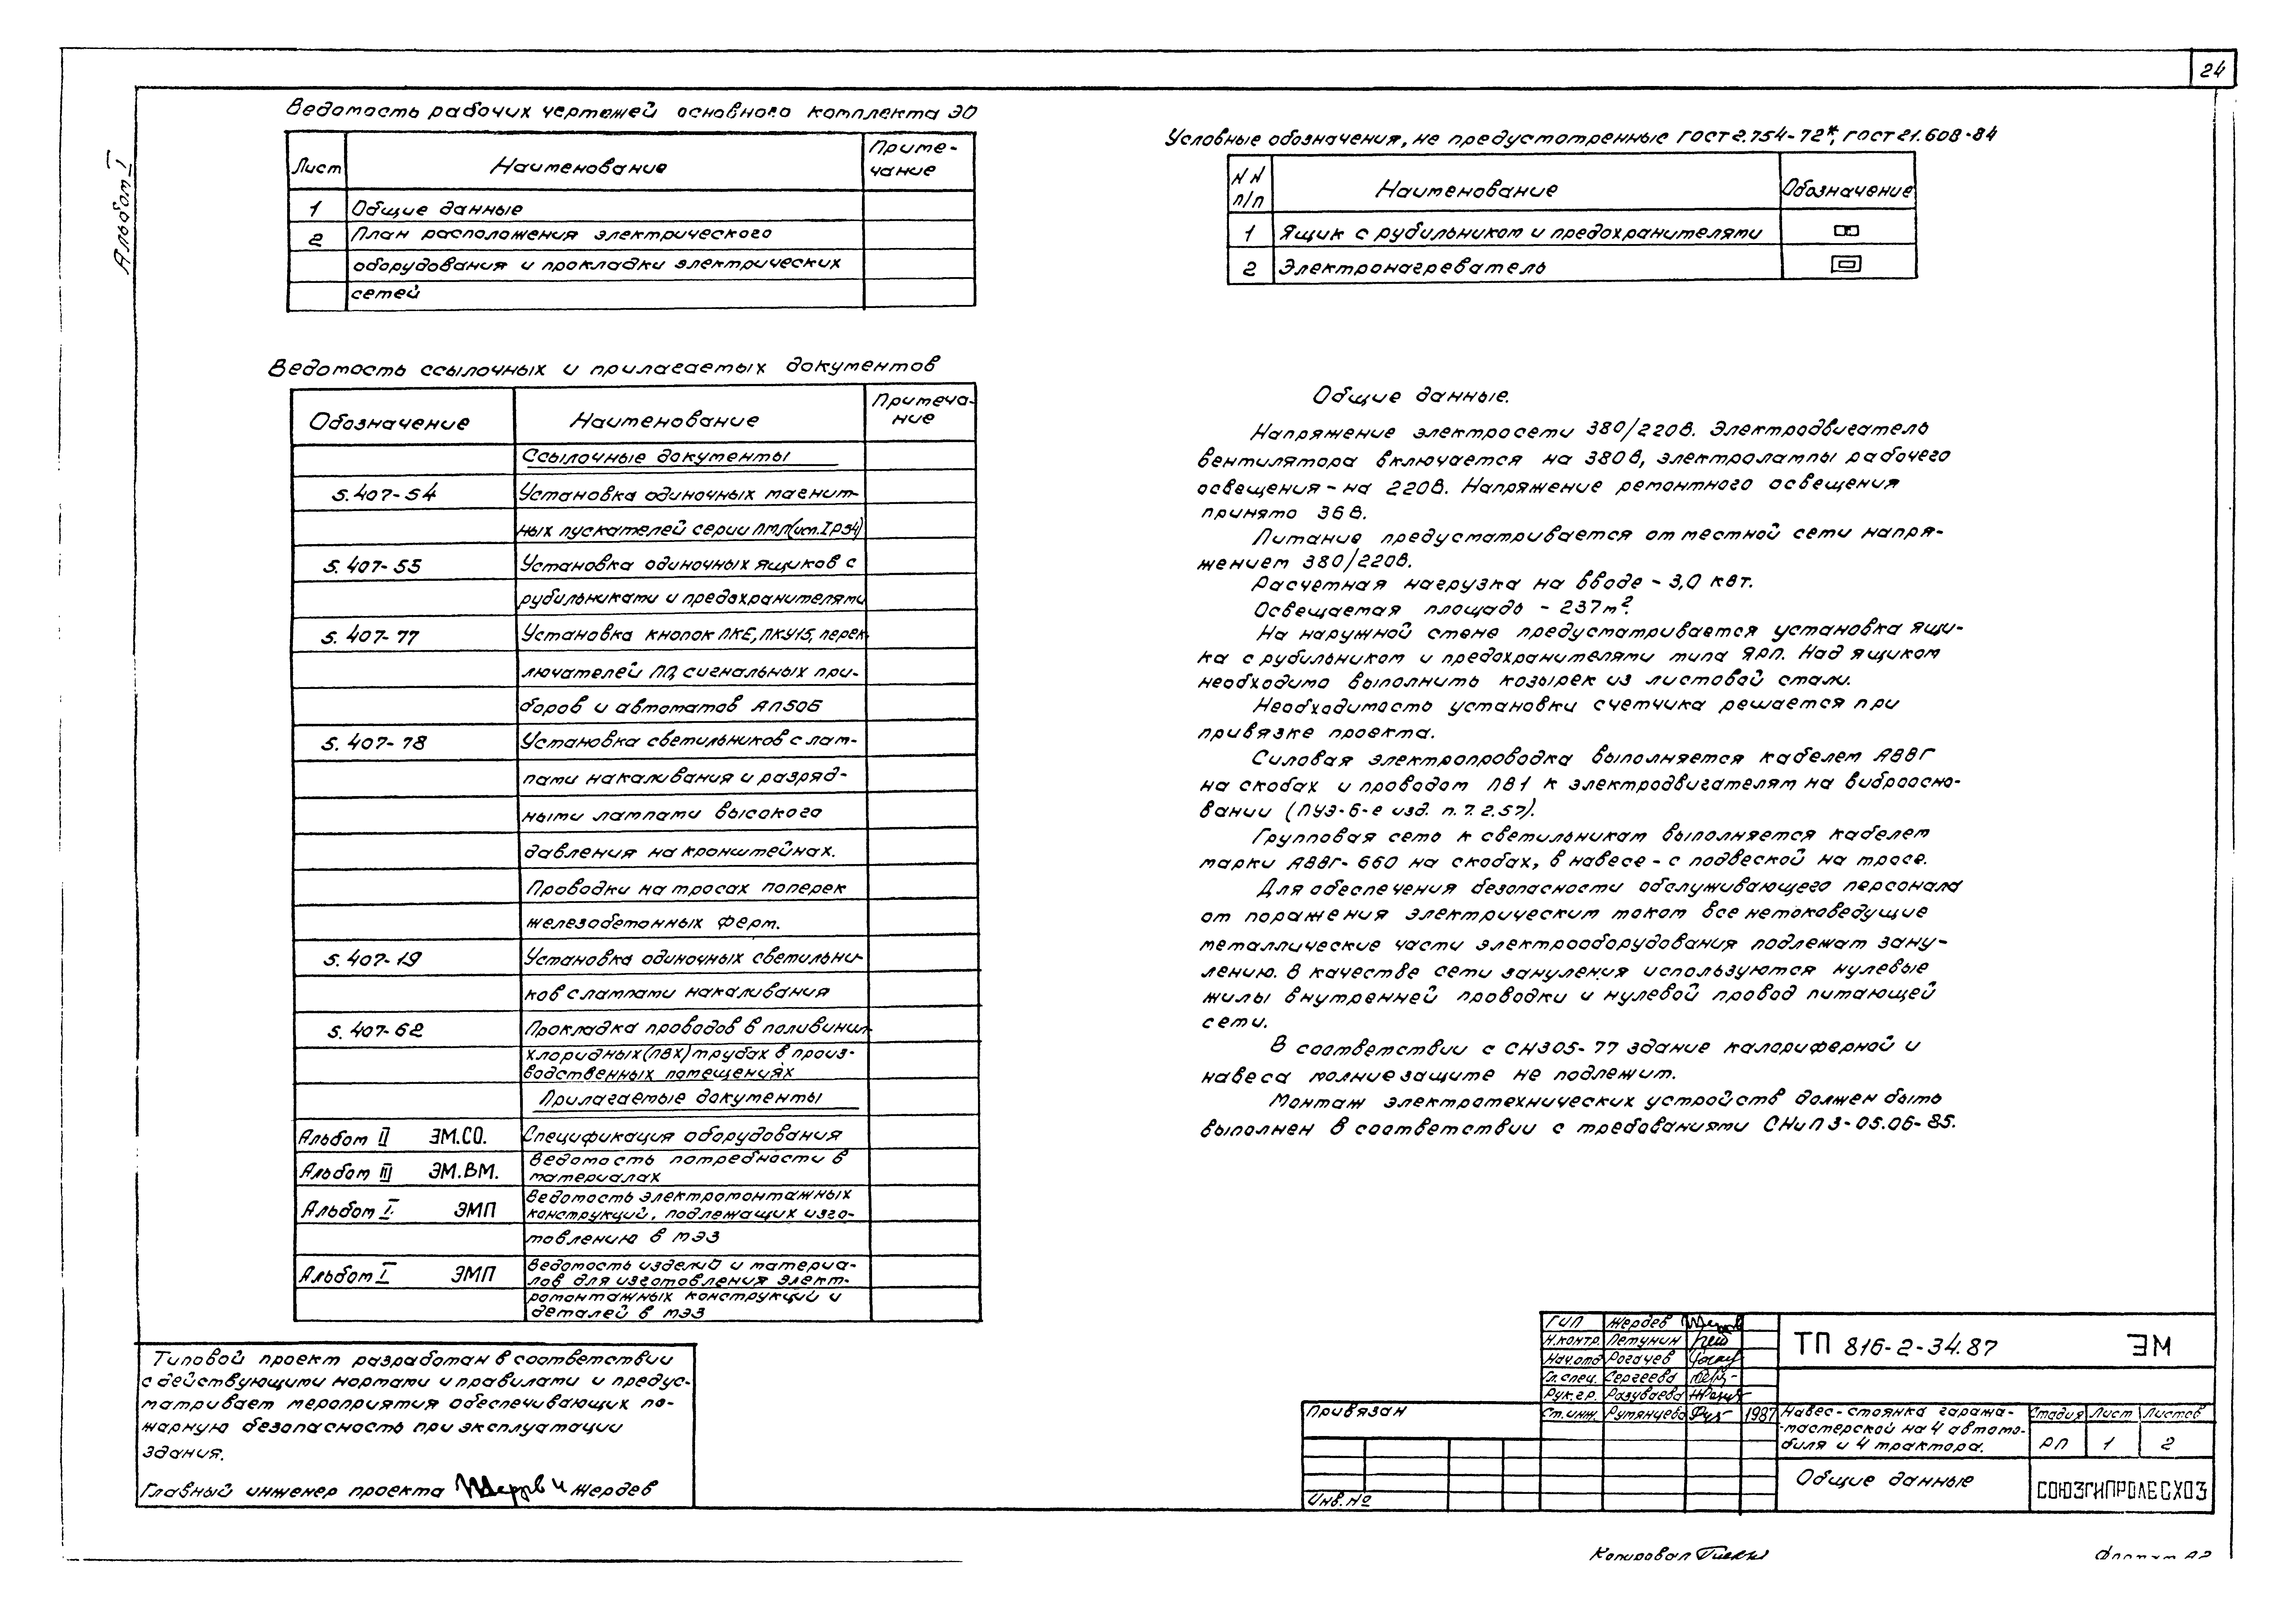 24
Альбом I
Ведомость рабочих чертежей основного комплекта ЭО
Лист Наименование Приме-
чание
1 Общие данные
2 План расположения электрического
оборудования и прокладки электрических
сетей
Ведомость ссылочных и прилагаемых документов
Обозначение Наименование Примеча-
ние
Ссылочные документы
5.407-54 Установка одиночных магнит-
ных пускателей серии ПМЛ(исп.IP54)
5.407-55 Установка одиночных ящиков с
рубильниками и предохранителями
5.407-77 Установка кнопок ПКЕ, ПКУ15, перек-
лючателей ПП, сигнальных при-
боров и автоматов АП50Б
5.407-78 Установка светильников с лам-
пами накаливания и разряд-
ными лампами высокого
давления на кронштейнах.
Проводки на тросах поперек
железобетонных ферм.
5.407-19 Установка одиночных светильни-
ков с лампами накаливания
5.407-62 Прокладка проводов в поливинил-
хлоридных (ПВХ) трубах в произ-
водственных помещениях
Прилагаемые документы
Альбом II ЭМ.СО. Спецификация оборудования
Альбом III ЭМ.ВМ. Ведомость потребности в
материалах
Альбом I. ЭМП Ведомость электромонтажных
конструкций, подлежащих изго-
товлению в МЭЗ
Альбом I ЭМП Ведомость изделий и материа-
лов для изготовления элект-
ромонтажных конструкций и
деталей в МЭЗ
Типовой проект разработан в соответствии
с действующими нормами и правилами и предус-
матривает мероприятия обеспечивающих по-
жарную безопасность при эксплуатации
здания.
Главный инженер проекта Жердев
Условные обозначения, не предусмотренные ГОСТ 2.754-72*, ГОСТ 21.608-84
NN
п/п Наименование Обозначение
1 Ящик с рубильником и предохранителями
2 Электронагреватель
Общие данные.
Напряжение электросети 380/220в. Электродвигатель
вентилятора включается на 380в, электролампы рабочего
освещения - на 220в. Напряжение ремонтного освещения
принято 36в.
Питание предусматривается от местной сети напря-
жением 380/220в.
Расчетная нагрузка на вводе - 3,0 квт.
Освещаемая площадь - 237м².
На наружной стене предусматривается установка ящи-
ка с рубильником и предохранителями типа ЯРП. Над ящиком
необходимо выполнить козырек из листовой стали.
Необходимость установки счетчика решается при
привязке проекта.
Силовая электропроводка выполняется кабелем АВВГ
на скобах и проводом ПВ1 к электродвигателям на виброосно-
вании (ПУЭ-6-е изд. п. 7.2.57).
Групповая сеть к светильникам выполняется кабелем
марки АВВГ-660 на скобах, в навесе - с подвеской на тросе.
Для обеспечения безопасности обслуживающего персонала
от поражения электрическим током все нетоковедущие
металлические части электрооборудования подлежат зану-
лению. В качестве сети зануления используются нулевые
жилы внутренней проводки и нулевой провод питающей
сети.
В соответствии с СН305-77 здание калориферной и
навеса молниезащите не подлежит.
Монтаж электротехнических устройств должен быть
выполнен в соответствии с требованиями СНиП 3-05.06-85.
ГИП Жердев
Н.контр. Петунин
Нач.отд Рогачев
Гл.спец. Сергеева
Рук.гр. Разуваева
Ст.инж. Румянцева 1987
ТП 816-2-34.87 ЭМ
Привязан
Инв.№
Навес-стоянка гаража-
-мастерской на 4 автомо-
биля и 4 трактора.
Стадия Лист Листов
РП 1 2
Общие данные
СОЮЗГИПРОЛЕСХОЗ
Копировал
Формат А2